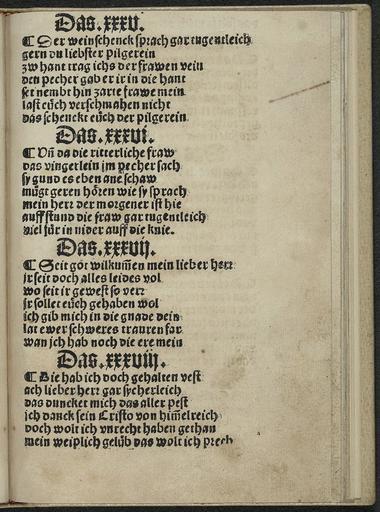 Das .xxxv.
¶ Der weinschenck sprach gar tugentleich
gern du liebster pilgerein
zw hant trag ichs der frawen vein
den pecher gab er ir in die hant
set nembt hin zarte frawe mein
last eüch verschmahen nicht
das schenckt eüch der pilgerein
Das .xxxvi.
¶ Vñ da die ritterliche fraw
das vingerlein jm pecher sach
sy gund es eben ane schaw
mügt geren hören wie sy sprach
mein herr der morgener ist hie
auff stund die fraw gar tugentleich
viel für in nider auff die knie.
Das .xxxvij.
¶ Seit got wilkum̃en mein lieber herr
jr seit doch alles leides vol
wo seit ir gewest so verr
jr sollet eüch gehaben wol
ich gib mich in die gnade dein
lat ewer schweres trauren far
wan jch hab noch die ere mein
Das .xxxviij.
¶ Die hab ich doch gehalten vest
ach lieber herr gar sycherleich
das duncket mich das aller pest
jch danck sein Cristo von him̃elreich
doch wolt ich vnrecht haben gethan
mein weiplich gelüb das wolt ich prech